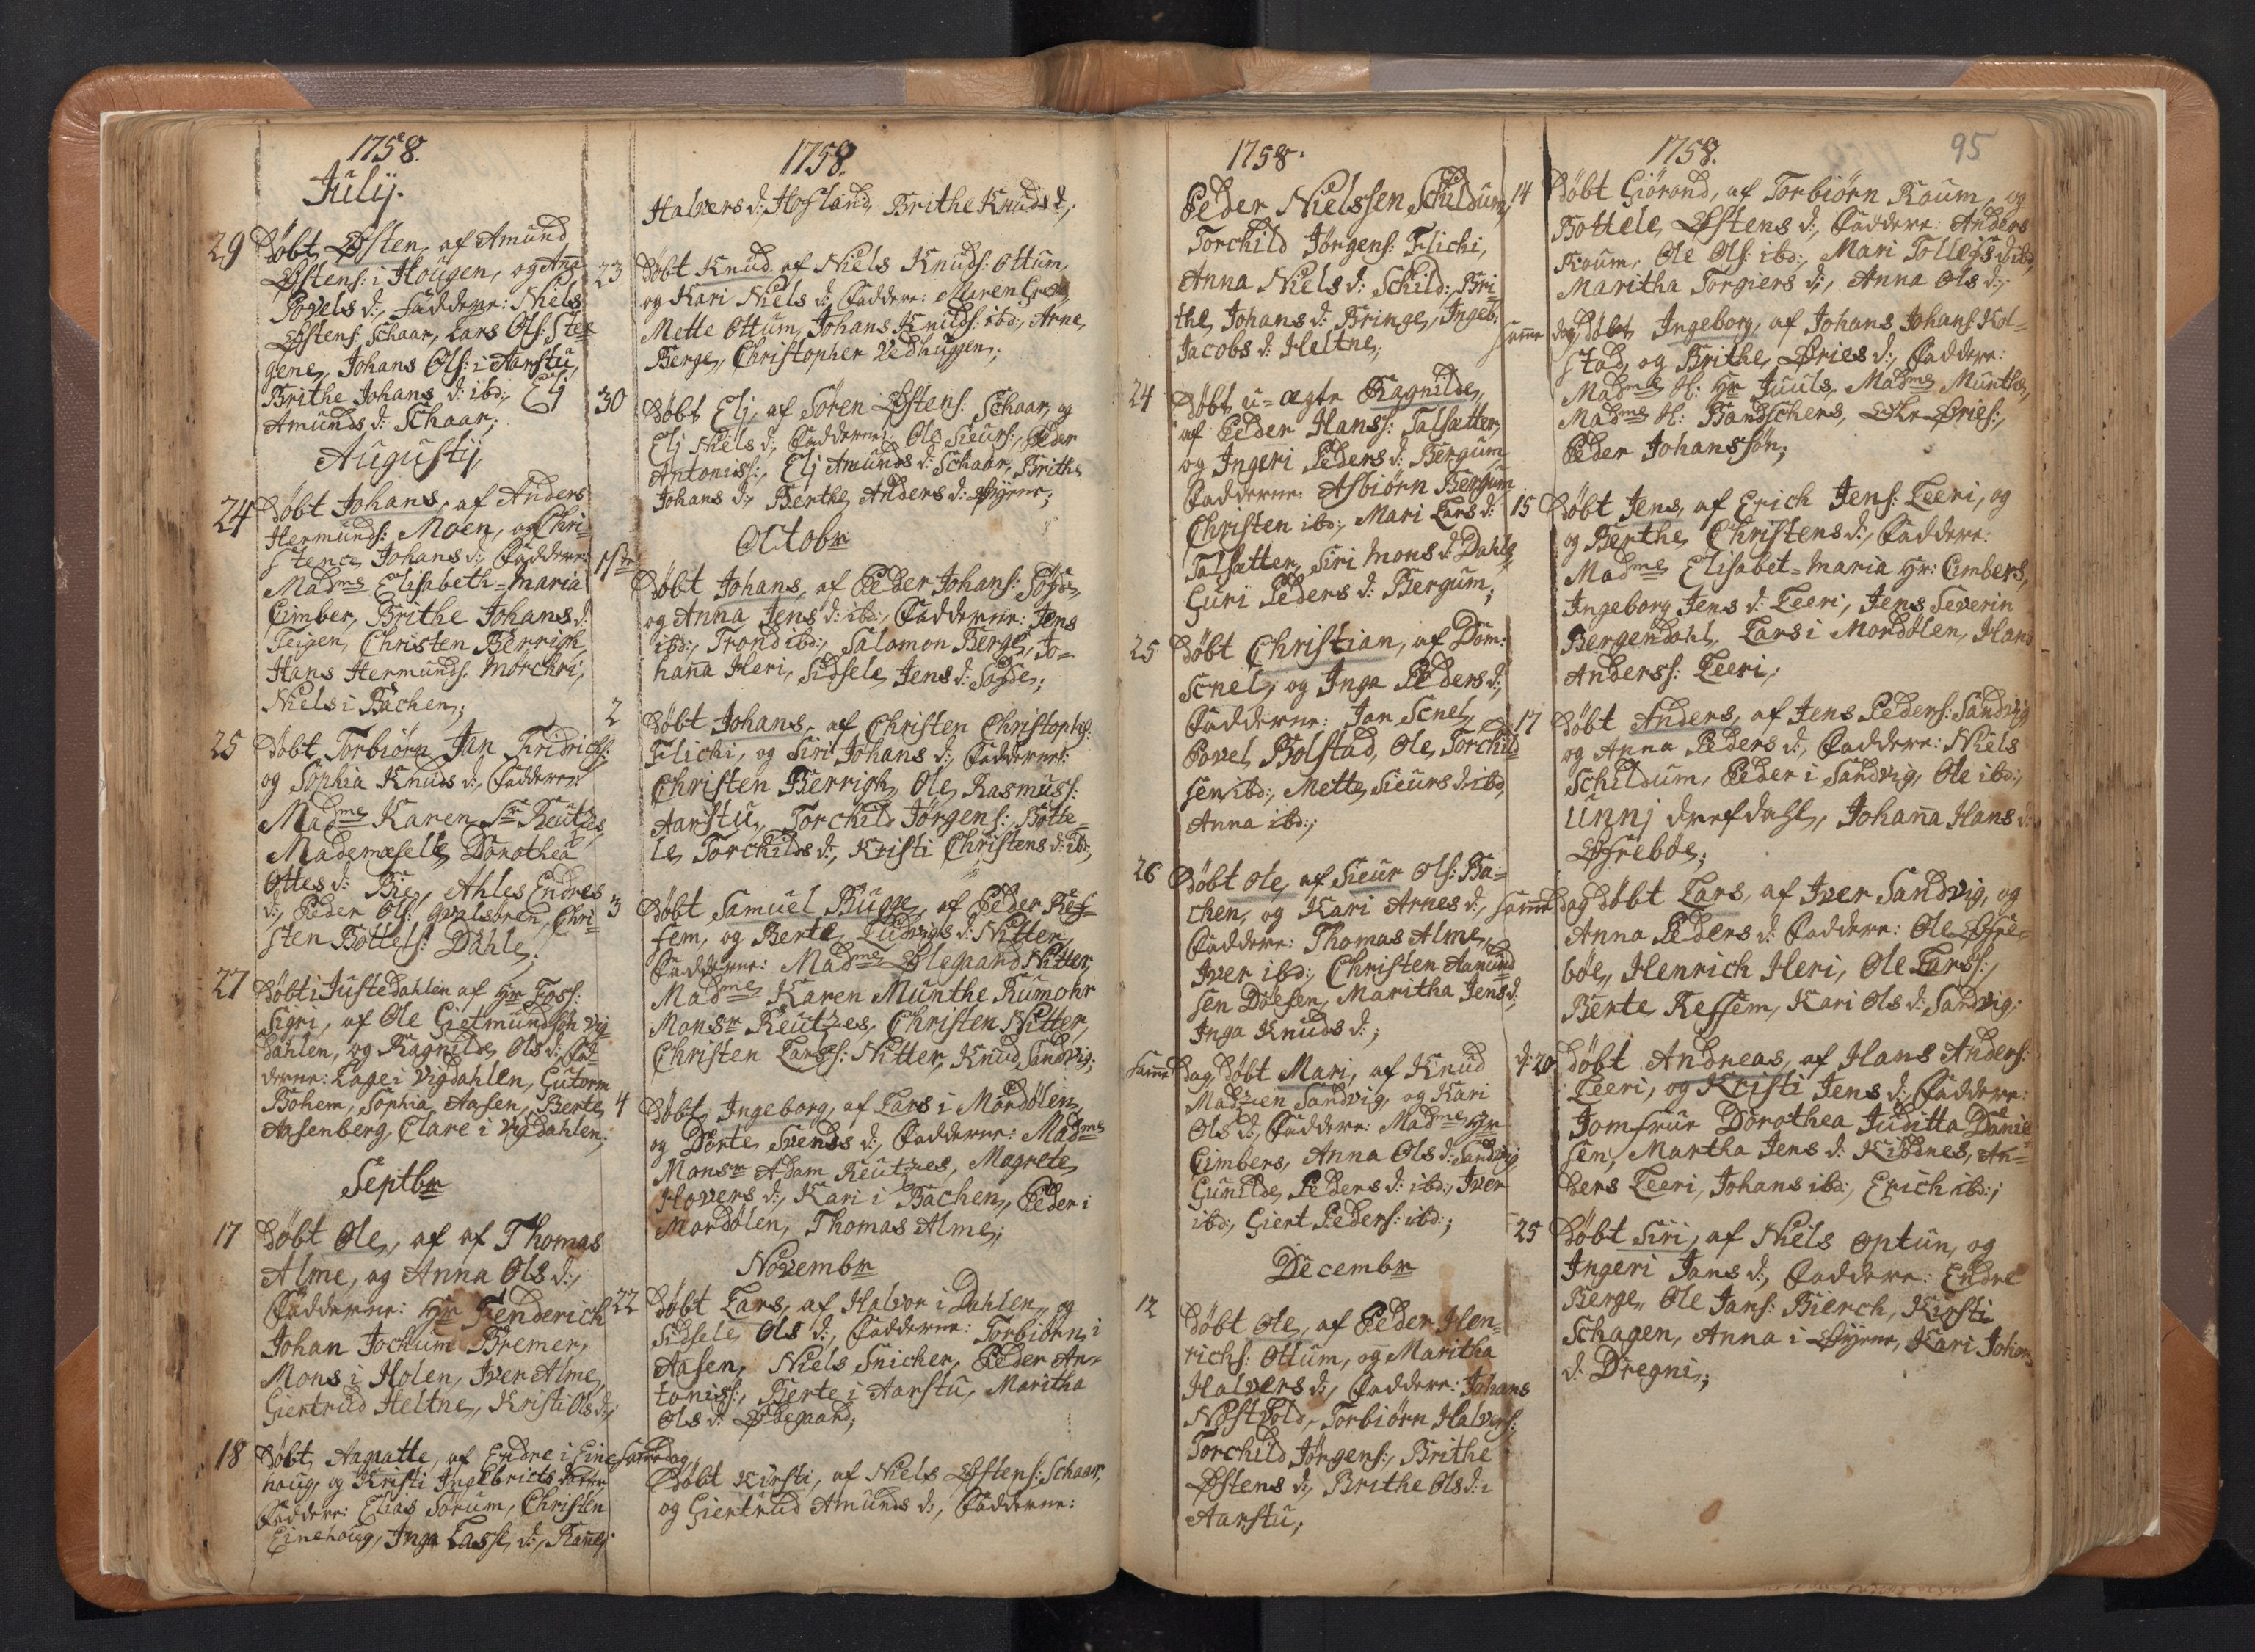 1758.
Julij.
29 Døbt Østen, af Amund
Østens: i Hougen, og Aña
Povels d:, Faddere: Niels
Østens: Schaar, Lars Ols: Ste-
gene, Johans Ols: i Aarstu,
Brithe Johans d: ibd:, Elj
Amunds d: Schaar;
Augustij
24 Døbt Johans, af Anders
Hermunds: Moen, og Chri-
stence Johans d:, Faddere:
Madme Elisabeth-Maria
Cimber, Brithe Johans d:
Teigen, Christen Berrigh,
Hans Hermunds. Morchri,
Niels i Bachen;
25 Døbt Torbiørn Jan Fridrichs:
og Sophia Knuds d:, Faddere:
Madme Karen Sr Reutzes,
Mademoeselle Dorothea
Ottes d: Bie, Ahles Endres
d:, Peder Ols: Qvalsøren, Chri-
sten Bottels: Dahle;
27 Døbt i Justedahlen af Hr Foss:
Sigri, af Ole Gietmundsøn Vig-
dahlen, og Ragnilde Ols d: Fad-
derne: Lage i Vigdahlen, Gutorm
Bohem, Sophia Aasen, Berte
Aasenberg, Clare i Vigdahlen;
Septbr
17 Døbt Ole, af af Thomas
Alme, og Anna Ols d:,
Fadderne: Hr Fenderich
Johan Jochum Bremer,
Mons i Holen, Iver Alme,
Giertrud Heltne, Kristi Ols d:;
18 Døbt Aagatte, af Endre i Eine-
houg, og Kristi Ingebricts
Faddere: Elias Sørum, Christen
Einehoug, Inga Lasse d:,
1758.
Halvers d: Hofland, Brithe Knuds d;
23 Døbt Knud af Niels Knuds: Ottum,
og Kari Niels d: Faddere: Maren
Mette Ottum, Johans Knuds: ibd:, Arne
Berge, Christopher Vedhuggen;
30 Døbt Elj, af Søren Østens: Schaar, og
Elj Niels d:, Fadderne: Ole Sieurs:, Peder
Antoniss:, Elj Amunds d: Schaar, Brithe
Johans d:, Berthe Anders d: Øyrene;
Octobr
1ste Døbt Johans, af Peder Johans: Søgde,
og Anna Jens d: ibd:, Fadderne: Jens
ibd:, Trond ibd:, Salomon Berge, Jo-
hana Heri, Sidsele Jens d: Søgde;
2 Døbt Johans, af Christen Christophs:
Flichi, og Siri Johans d:, Fadderne:
Christen Berrigh, Ole Rasmuss:
Aarstu, Torchild Jørgens:, Botte-
le Torchilds d:, Kristi Christens d: ibd:,
3 Døbt Samuel Bugge, af Peder Ref-
sem, og Berte Ludvigs d: Nitter,
Fadderne: Madme Ølegaard Nitter,
Madme Karen Munthe Rumohr
Monsr Reutzes, Christen Nitter,
Christen Larss: Nitter, Knud Sandvig;
4 Døbt Ingeborg, af Lars i Mordølen,
og Dorte Svends d:, Fadderne: Madme
Monsr Adam Reutzes, Magrete
Hovers d:, Kari i Bachen, Peder i
Mordølen, Thomas Alme;
Novembr
22 Døbt Lars, af Halvor i Dahlen, og
Sidsele Ols d:, Fadderne: Torbiørn i
Aasen, Niels Snicher, Peder An-
toniss:, Berte i Aarstu, Maritha
Ols d: Ødegaard;
Samme dag
Døbt Kirsti, af Niels Østens: Schaar,
og Giertrud Amunds d:, Fadderne:
1758.
Peder Nielssen Schildum,
Torchild Jørgens: Flichi,
Anna Niels d: Schild:, Bri-
the Johans d: Bringe, Ingeb:
Jacobs d: Heltne;
24 Døbt u-ægte Ragnilde,
af Peder Hanss: Talsætter,
og Ingeri Peders d: Bergum,
Fadderne: Asbiørn Bergum
Christen ibd:, Mari Lars d:
Talsætter, Siri Mons d: Dahle,
Guri Peders d: Bergum;
25 Døbt Christian, af Dom:
Scnel, og Inga Peders d:,
Fadderne: Jan Scnel,
Povel Bolstad, Ole Torchild-
sen ibd:, Mette Sieurs d: ibd,
Anna ibd:;
26 Døbt Ole, af Sieur Ols: Ba-
chen, og Kari Arnes d:,
Faddere: Thomas Alme,
Iver ibd:, Christen Aamund-
sen Døesen, Maritha Jens d:
Inga Knuds d:;
Samme dag Døbt Mari, af Knud
Madzen Sandvig, og Kari
Ols d:, Faddere: Madme Hr
Cimbers, Anna Ols d: Sandvig,
Gunilde Peders d: ibd:, Iver
ibd:, Giert Peders: ibd:;
Decembr
12 Døbt Ole, af Peder Hen-
richs: Ottum, og Maritha
Halvers d:, Faddere: Johans
Nøstvold, Torbiørn Halvers:
Torchild Jørgens:, Brithe
Østens d:, Brithe Ols d: i
Aarstu;
1758.
95
14 Døbt Giørond, af Torbiørn Koum, og
Bottele Østens d:, Faddere: Anders
Koum, Ole Ols: ibd:, Mari Tollegs d: ibd,
Maritha Torgiers d:, Anna Ols d:;
Samme dag Døbt Ingeborg, af Johans Johans: Kol-
stad, og Brithe Øries d:, Faddere:
Madme H: Hr Juuls, Madme Munthe,
Madme H: Bandschers, Ole Øries:,
Peder Johanssøn;
15 Døbt Jens, af Erich Jens: Leeri, og
og Berthe Christens d:, Faddere:
Madme Elisabet-Maria Hr: Cimbers,
Ingeborg Jens d: Leeri, Jens Severin
Bergendahl, Lars i Mordølen, Hans
Anderss: Leeri;
17 Døbt Anders, af Jens Peders: Sandvig
og Anna Peders d:, Faddere: Niels
Schildum, Peder i Sandvig, Ole ibd:,
Unnj Drefdahl, Johana Hans d:
Øfrebøe;
Samme dag Døbt Lars, af Iver Sandvig, og
Anna Peders d: Faddere: Ole Øfre-
bøe, Henrich Heri, Ole Larss:,
Berte Reffem, Kari Ols d: Sandvig;
d: 20 Døbt Andreas, af Hans Anders:
Leeri, og Kristi Jens d:, Faddere:
Jomfrue Dorothea Juditta Danie-
sen, Martha Jens d: Kiddnes, An-
ders Leeri, Johans ibd:, Erich ibd:;
25 Døbt Siri, af Niels Optun, og
Ingeri Jans d:, Faddere: Endre
Berge, Ole Jans: Bierch, Kirsti
Schagen, Anna i Øyrene, Kari Johans
d: Dregni;